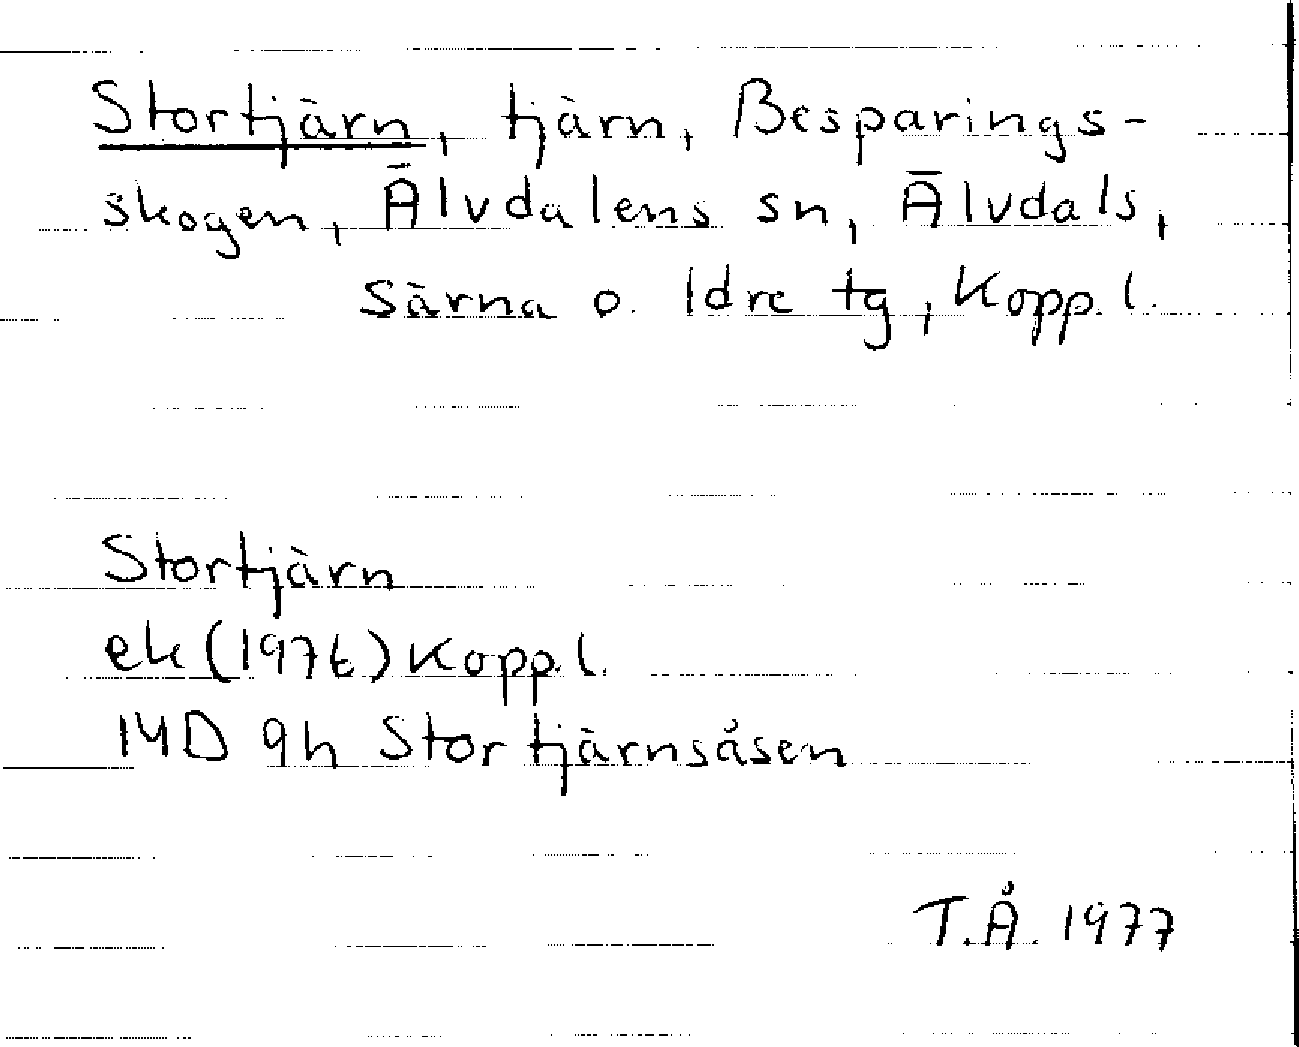 Stortjärn, tjärn, Besparings-
skogen, Älvdalens sn, Älvdals,
Särna o. Idre tg, Kopp. l.
Stortjärn
ek (1976) Kopp. l.
14D 9h Stortjärnsåsen
T.Å. 1977